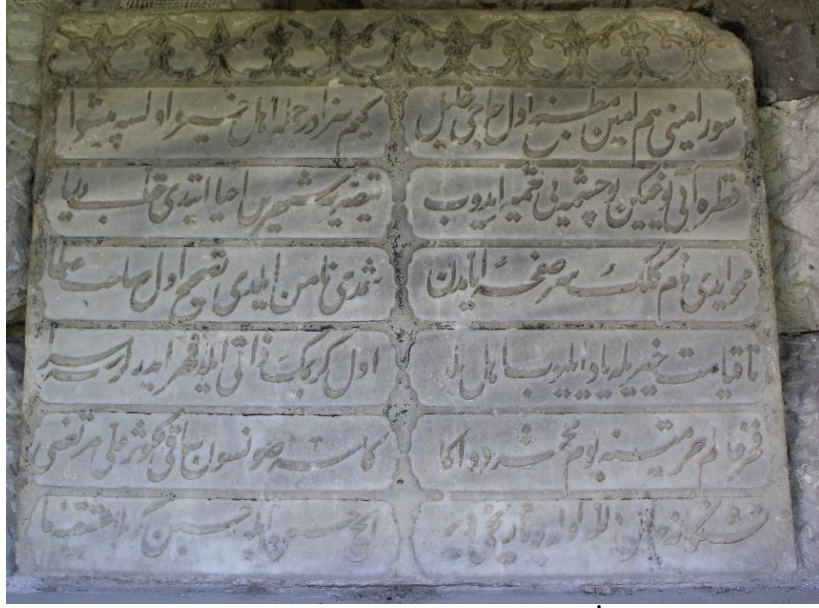 سور امینی هم امین مطبخ اول حاجی خلیل
کیم سزادر جمله اهل خیره اولسه پیشوا
قطره آبی بو چشمه یی تعمیر ایدوب
احیا ایتدی قلب
محو ایدی نام کلک سر صفحۀ ایامدن
شمدی نامن ایلدی تصحیح اول صاحب عطا
تا قیامت خیریله یاد ایلیوب اهل بلد
اول کریمک ذاتی ایله فخر ایدر
فخر عالم حرمتنه یوم محشرده اکا
کاسه صونسون ساقی کوثر علی مرتضی
تشنکانه لوله تاریخی
ایچ حسن ایله حسین کربلا عشقنه ما